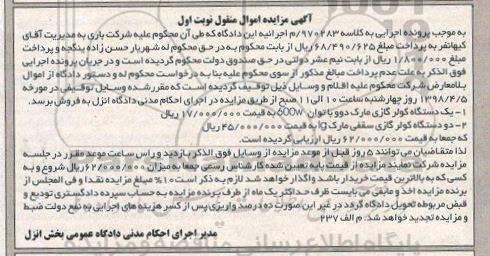 آگهی مزایده اموال منقول نوبت اول
به موجب پرونده اجرایی به کلاسه ۹۷۰۲۸۳/م اجرائیه این دادگاه که طی آن محکوم علیه شرکت باری به مدیریت آقای
کیهانفر به پرداخت مبلغ ۶۸/۴۹۰/۶۲۵ ریال از بابت محکوم به در حق محکوم له شهریار حسن زاده پنجگه و پرداخت
مبلغ ۱/۸۰۰/۰۰۰ ریال از بابت نیم عشر دولتی در حق صندوق دولت محکوم گردیده است و در جریان پرونده اجرایی
فوق الذکر به علت عدم پرداخت مبالغ مذکور از سوی محکوم علیه بنا به درخواست محکوم له و دستور دادگاه از اموال
بلامعارض شرکت محکوم علیه اقلام و وسایل ذیل توقیف گردیده است که مقرر شده وسایل توقیفی در مورخه
۱۳۹۸/۴/۵ روز چهارشنبه ساعت ۱۰ الی ۱۱ صبح از طریق مزایده در اجرای احکام مدنی دادگاه انزل به فروش برسد.
۱- یک دستگاه کولر گازی مارک دوو با توان 600w به قیمت ۱۷/۰۰۰/۰۰۰ ریال
۲- دو دستگاه کولر گازی سقفی مارک lg به قیمت ۴۵/۰۰۰/۰۰۰ ریال
که جمعا به قیمت ۶۲/۰۰۰/۰۰۰ ریال ارزیابی گردیده است.
لذا متقاضیان می توانند ۵ روز قبل از موعد مزایده از وسایل فوق الذکر بازدید و راس ساعت موعد مقرر در جلسه
مزایده شرکت نمایند مزایده از قیمت پایه تعیین شده کارشناس رسمی جمعا به میزان ۶۲/۰۰۰/۰۰۰ ریال شروع و به
کسی که به بالاترین قیمت خریدار باشد واگذار خواهد شد لازم به ذکر است ۱۰% مبلغ مزایده نقدا و فی المجلس از
برنده مزایده اخذ و مابقی می بایست ظرف حداکثر یک ماه از طرف برنده مزایده به حساب سپرده دادگستری تودیع و
قبض مربوطه تحویل دادگاه گردد در غیر این صورت ده درصد واریزی پس از کسر هزینه های اجرایی به نفع دولت ضبط
و مزایده تجدید خواهد شد. م الف ۲۳۷
مدیر اجرای احکام مدنی دادگاه عمومی بخش انزل